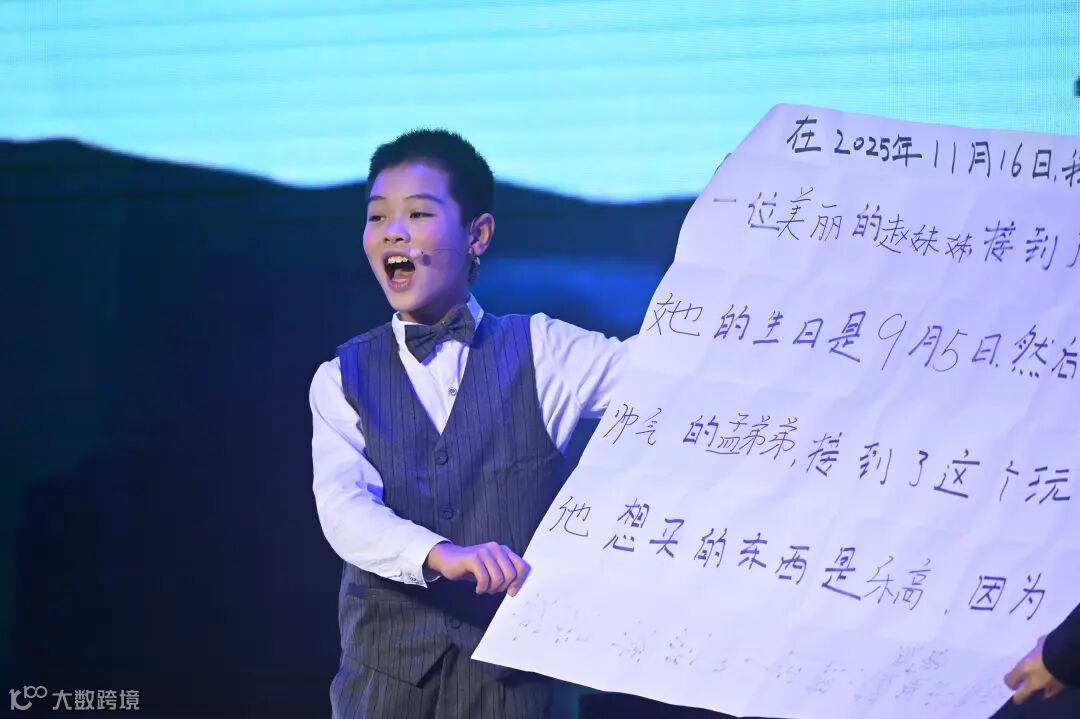 在2025年11月16日,我
一位美丽的赵妹妹接到了
她的生日是9月5日.然后
帅气的孟弟弟,接到了这个玩
他想买的东西是乐高,因为
大数跨境